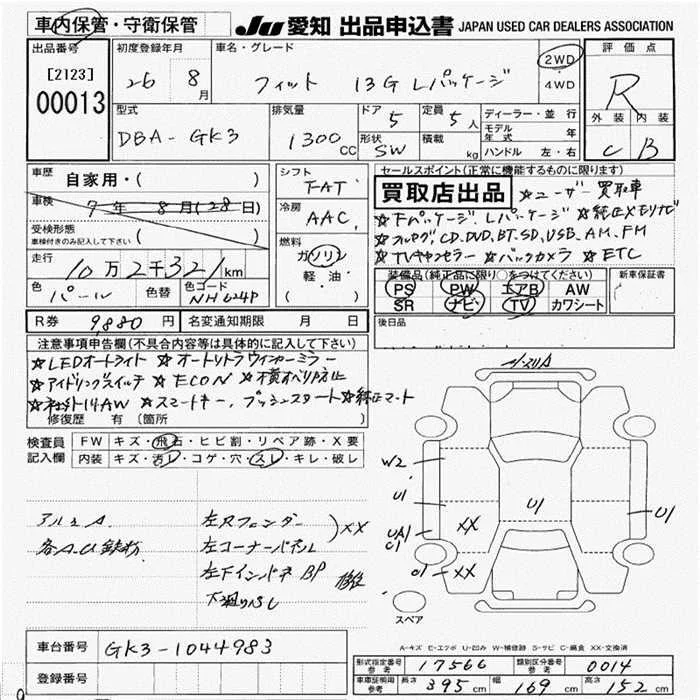 車内保管・守衛保管 JU 愛知 出品申込書 JAPAN USED CAR DEALERS ASSOCIATION
出品番号 初度登録年月 車名・グレード 2WD 評価点
[2123] 26 8月 フィット 13G Lパッケージ 4WD R
00013
型式 排気量 ドア 5 定員 5人 ディーラー・並行 外装 内装
DBA-GK3 1300CC 形状 SW 積載 kg モデル年式 年 C B
ハンドル 左・右
車歴 自家用・( ) シフト FAT セールスポイント(正常に機能するものに限ります)
車検 7年 8月(28日) 冷房 AAC 買取店出品 ☆ユーザー買取車
受検形態 ( ) ☆Fパッケージ Lパッケージ ☆純正メモリナビ
車検付きのみ記入して下さい 燃料 ☆フルセグ, CD, DVD, BT, SD, USB, AM, FM
走行 10万2千321km ガソリン ☆TVキャンセラー ☆バックカメラ ☆ETC
軽油
色 パール 色替 色コード NH624P 装備品(純正品に限り○をつけてください) 新車保証書
PS PW エアB AW
SR ナビ TV カワシート
R券 9,880円 名変通知期限 月 日 後日品
注意事項申告欄(不具合内容等は具体的に記入して下さい)
☆LEDオートライト ☆オートリトラウィンカーミラー
☆アイドリングスイッチ ☆ECON ☆横すべり防止
☆社外14AW ☆スマートキー, プッシュスタート ☆純正マット
修復歴 有(箇所 )
検査員 FW キズ・飛石・ヒビ割・リペア跡・X要
記入欄 内装 キズ・汚レ・コゲ・穴・スレ・キレ・破レ
W2
U1 U1 U1
アルミA 左Rフェンダー XX
左コーナーパネル
UA1
C1
XX
各A.U鉄粉
左下インパネBP
XX
下廻りSC
スペア
A-キズ E-エクボ U-凹み W-補修跡 S-サビ C-腐食 XX-交換済
車台番号 GK3-1044983
登録番号
形式指定番号 参考 17566 類別区分番号 参考 0014
車庫証明用 参考 長さ 395cm 幅 169cm 高さ 152cm